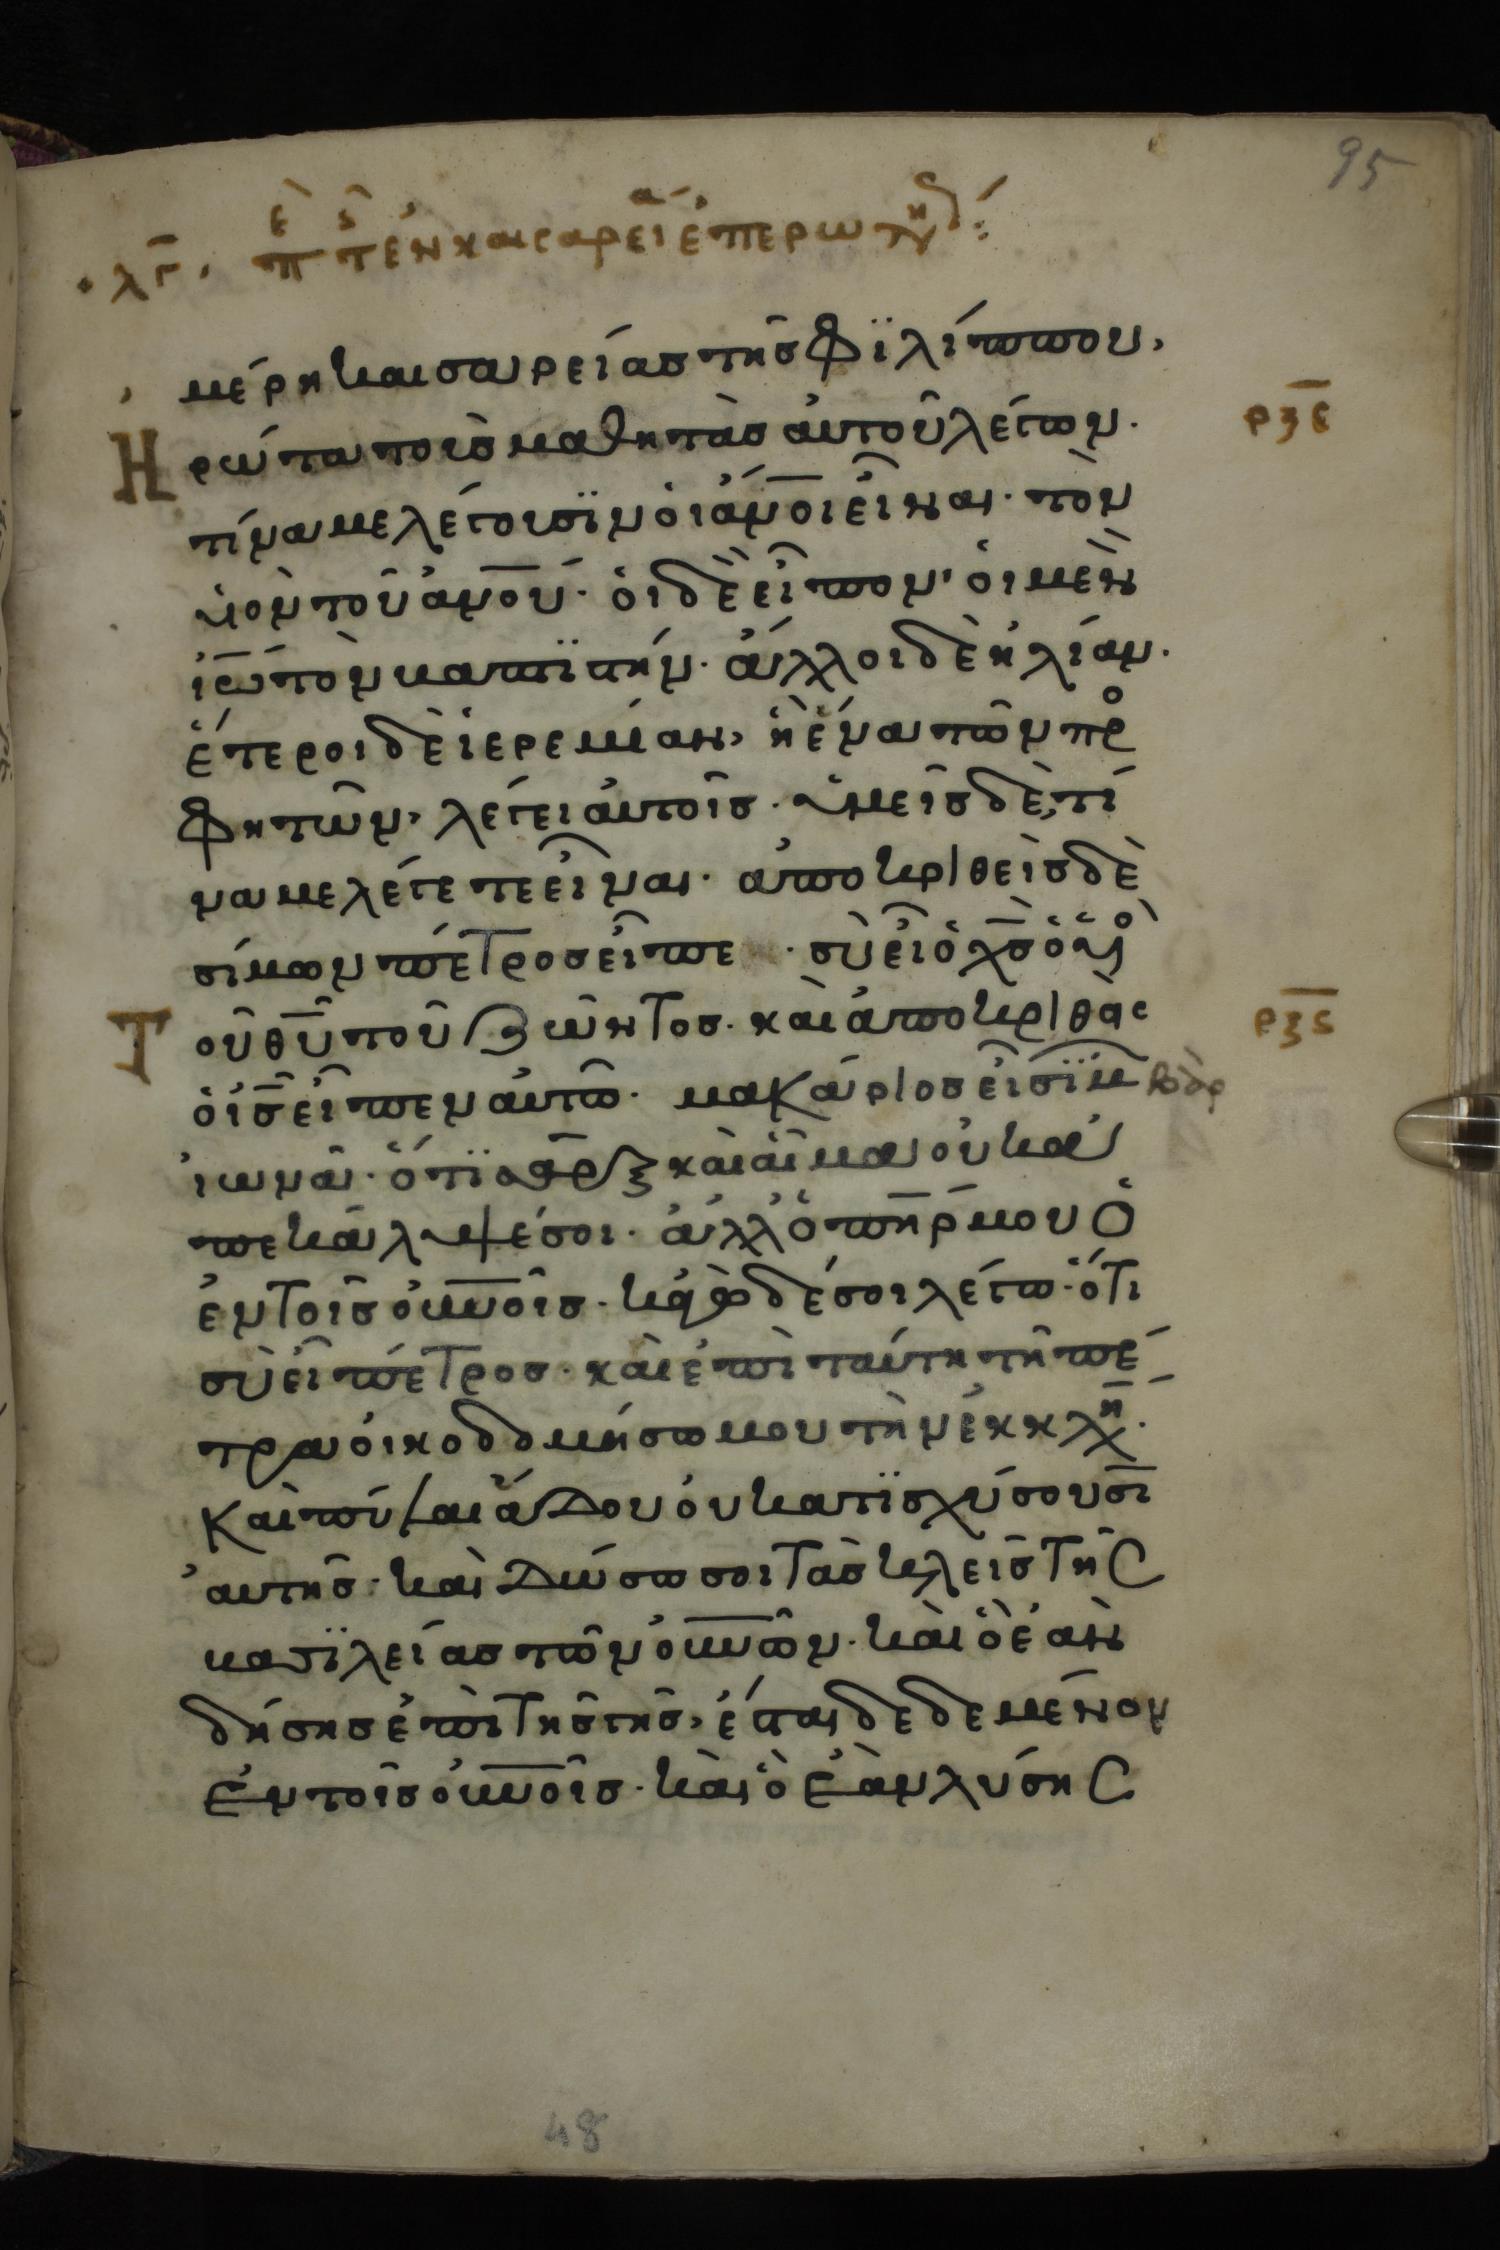 95
· λγ̄ · πὲ τς̑ ἐν καισαρεία ἐπερωτήσ:
μέρη καισαρείας τῆς Φϊλίππου,
Ἠρώτα τοὺς μαθητὰς ἀυτοῦ λέγων· ρξε
τίνα με λέγουσϊν ὁι ἄν̅ο̅ι εἶναι· τὸν
ὑὸν τοῦ ἀν̅ο̅ύ· ὁι δὲ εἶπον, ὁι μὲν
ἰω̅ τὸν βαπτϊστήν· ἄλλοι δὲ ἠλίαν·
ἕτεροι δὲ ἱερεμίαν, ἢ ἕνα τῶν προ
Φητῶν, λέγει ἀυτοῖς· ὑμεῖς δὲ, τί
να με λέγετε εἶναι· ἀποκριθεὶς δὲ
σίμων πέτρος εἶπε · σὺ εἶ ὁ χ̅ς̅ ὁ ὑς
Τοῦ θ̅υ̅ τοῦ ζῶντος· καὶ ἀποκριθεὶς ρξς
ὁ ι̅ς̅ εἶπεν ἀυτῶ· μακάριος εἶ σϊμ
ἰωνᾶ· ὅτϊ σὰρξ καὶ αἷμα οὐκ ἀ
πεκάλυψέ σοι· ἀλλ' ὁ π̅η̅ρ̅ μου ὁ
ἐν τοῖς ο̅υ̅ν̅ο̅ῖς· κἀγὼ δέ σοι λέγω· ὅτι
σὺ εἶ πέτρος· καὶ ἐπὶ ταύτη τῆ πέ
τρα ὀικοδομήσω μου τὴν ἐκκλη·
καὶ πύλαι ἅδου ὀυ κατϊσχύσουσϊ
ἀυτῆς· καὶ δώσω σοι τὰς κλεῖς τῆς
βασϊλείας τῶν ο̅υ̅ν̅ῶν· καὶ ὃ ἐὰν
δήσης ἐπὶ τῆς γῆς, ἔσται δεδεμένον
ἐν τοῖς ο̅υ̅ν̅ο̅ῖς· καὶ ὃ ἐὰν λύσης
48